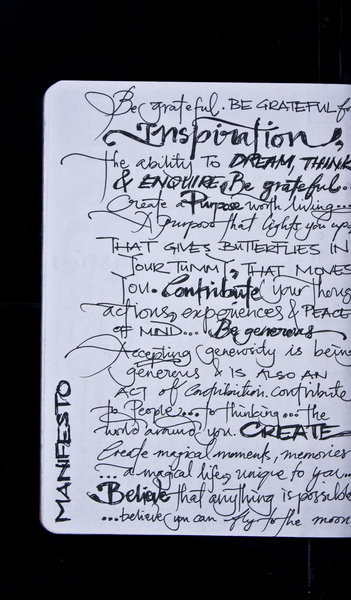 Be grateful. BE GRATEFUL fo
Inspiration,
the ability TO DREAM, THINK
& ENQUIRE. Be grateful.
Create a Purpose worth living...
A purpose that lights you up
THAT GIVES BUTTERFLIES IN
YOUR TUMMY, THAT MOVES
You. Contribute your thoug
actions, experiences & PEACE
OF MIND... Be generous
Accepting generosity is being
generous & IS ALSO AN
ACT of Contribution. contribute
to People... to thinking... the
world around you. CREATE
Create magical moments, memories
... a magical life, unique to you...
Believe that anything is possible
...believe you can fly to the moon
MANIFESTO